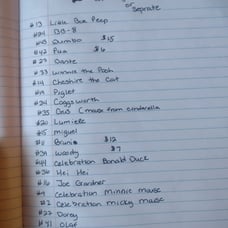 or
Seprate
#13 Little Boe Peep
#24 BB-8
#43 Dumbo $15
#42 Pua $6
#27 Dante
#33 Winnie the Pooh
#14 Cheshire the Cat
#19 Piglet
#24 Coggsworth
#35 Gus (mouse from cinderella
#20 Lumiere
#15 miguel
#11 Bruni $12
#39 Woody $7
#44 Celebration Donald Duck
#30 Hei Hei
#16 Joe Gardner
#4 Celebration Minnie mouse
#2 Celebration micky mouse
#22 Dory
#41 Olaf